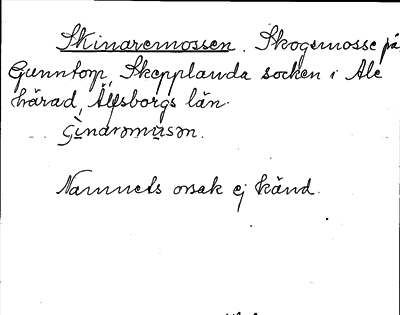 Skinaremossen. Skogsmosse på
Gunntorp, Skepplanda socken i Ale
härad, Älfsborgs län.
Namnets orsak ej känd.